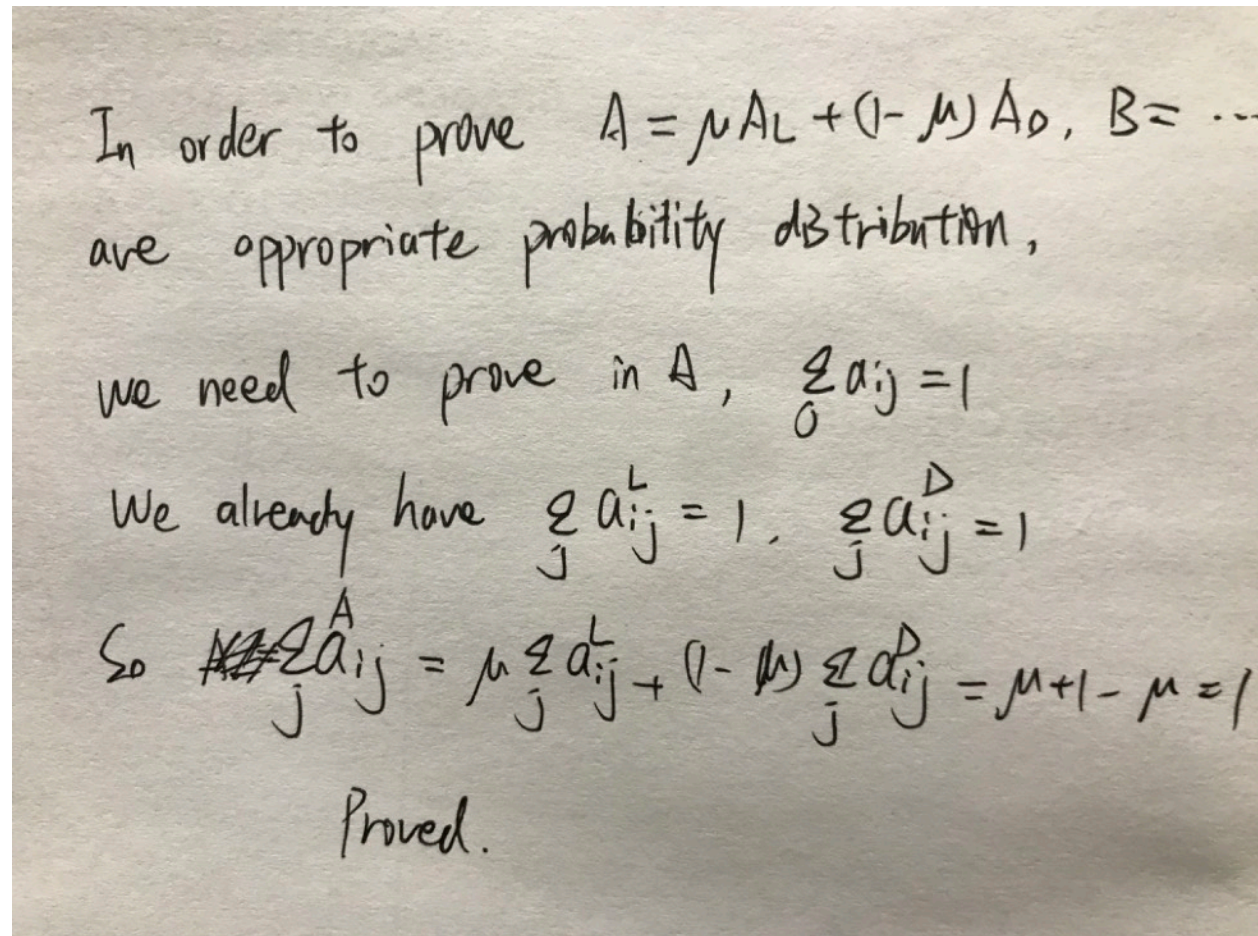 In order to prove A = μA_L + (1-μ)A_D, B= ...
are appropriate probability distribution,
we need to prove in A, Σ_j a_ij = 1
We already have Σ_j a^L_ij = 1. Σ_j a^D_ij = 1
So Σ_j a^A_ij = μ Σ_j a^L_ij + (1-μ) Σ_j a^D_ij = μ+1-μ = 1
Proved.